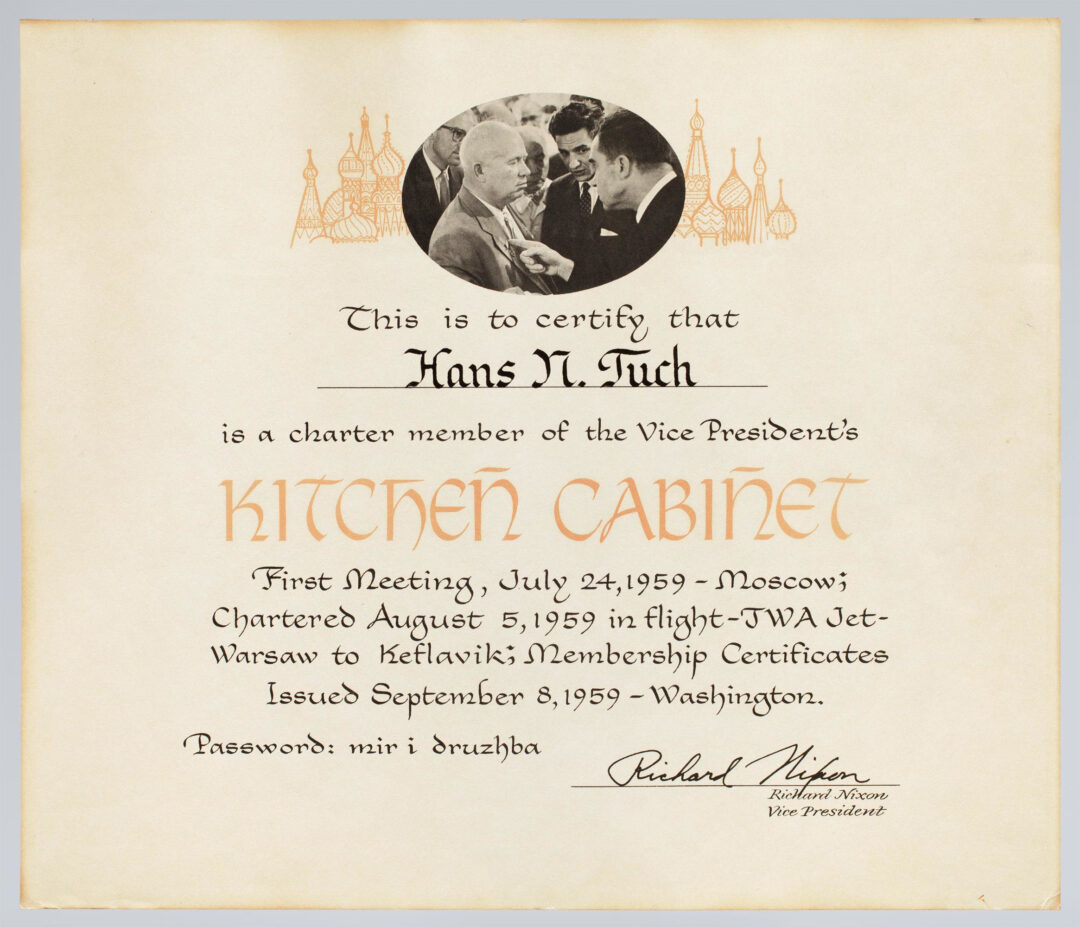 This is to certify that
Hans N. Tuch
is a charter member of the Vice President's
KITCHEN CABINET
First Meeting, July 24, 1959 - Moscow;
Chartered August 5, 1959 in flight-TWA Jet-
Warsaw to Keflavik; Membership Certificates
Issued September 8, 1959 - Washington.
Password: mir i druzhba
Richard Nixon
Richard Nixon
Vice President